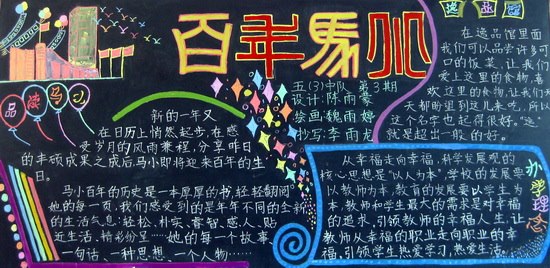 百年马小
逸品馆
在逸品馆里面
我们可以品尝许多可口
的饭菜,让我们
爱上这里的食物,喜
欢这里的食物,让我们天
天都盼望到这儿来吃,所以
这个名字也起得很好。“逸”
就是超出一般的好。
五(3)中队 第3期
设计:陈雨豪
绘画:魏雨婷
抄写:李雨
品读马小
新的一年又
在日历上悄然起步,在感
受岁月的风雨兼程,分享昨日
的丰硕成果之成后马小即将迎来百年的生
日。
马小百年的历史是一本厚厚的书,轻轻翻阅
她的每一页,我们感受到的是年年不同的全新
的生活气息:轻松、朴实、睿智、感人、贴
近生活、精彩纷呈……她的每一个故事、
一句话、一种思想、一个人物……
办学理念
从幸福走向幸福,科学发展观的
核心思想是“以人为本”,学校的发展要
以教师为本,教育的发展要以学生为
本,教师和学生最大的需求是对幸福
的追求,引领教师的幸福人生,让
教师从幸福的职业走向职业的幸
福,引领学生热爱学习,热爱生活。